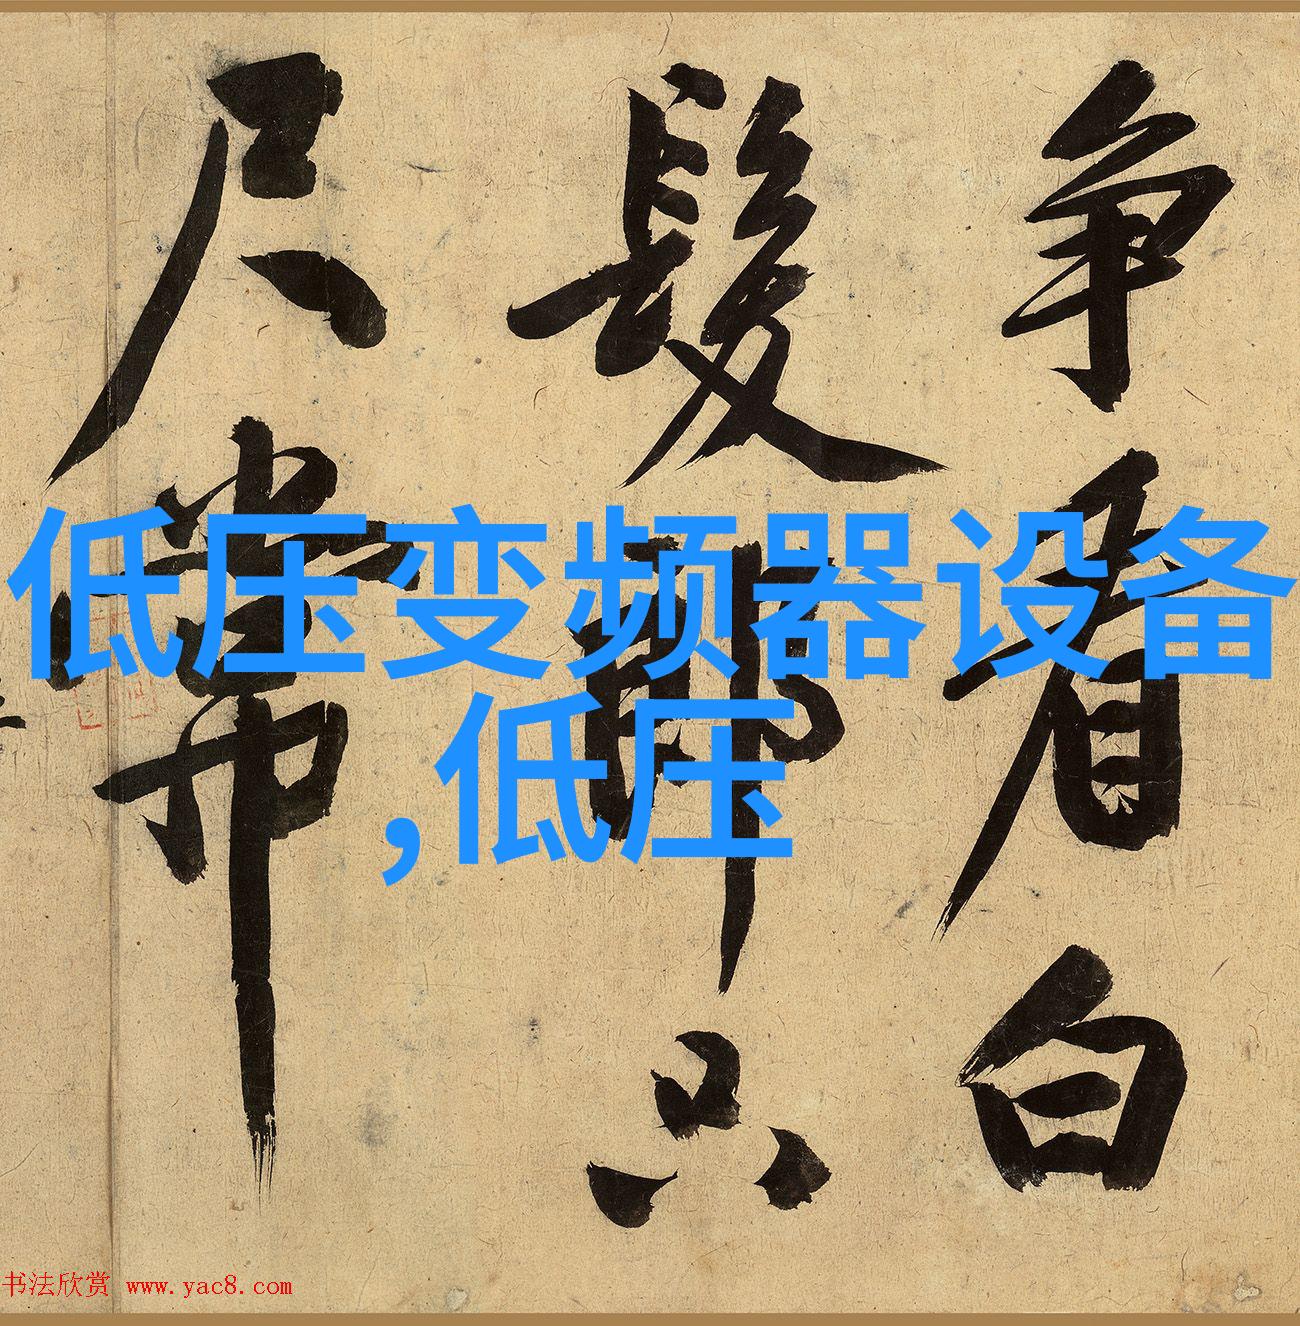 争看白
髮郎只
尺常
低压变频器设备
,低压
书法欣赏 www.yac8.com